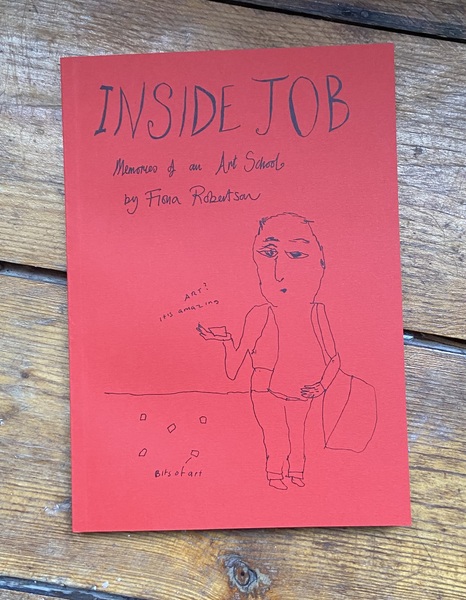 INSIDE JOB
Memories of an Art School
by Fiona Robertson
ART?
it is amazing
Bits of art